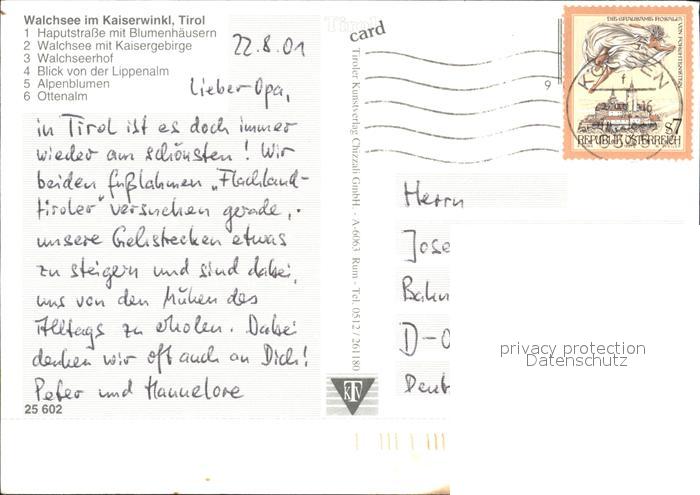 Walchsee im Kaiserwinkl, Tirol
1 Haputstraße mit Blumenhäusern
2 Walchsee mit Kaisergebirge
3 Walchseerhof
4 Blick von der Lippenalm
5 Alpenblumen
6 Ottenalm
22.8.01
Lieber Opa,
in Tirol ist es doch immer
wieder am schönsten! Wir
beiden fußlahmen „Flachland-
tiroler" versuchen gerade,
unsere Gehstrecken etwas
zu steigern und sind dabei,
uns von den Mühen des
Alltags zu erholen. Dabei
denken wir oft auch an Dich!
Peter und Hannelore
25 602
Tirol
card
Tiroler Kunstverlag Chizzali GmbH. - A-6063 Rum - Tel. 0512 / 261180
KTV
DIE GRAUSAME ROSALIA VON FORCHTENSTEIN
S7
REPUBLIK ÖSTERREICH
9
Herrn
Jose
Bahn
D-0
Deut
privacy protection
Datenschutz